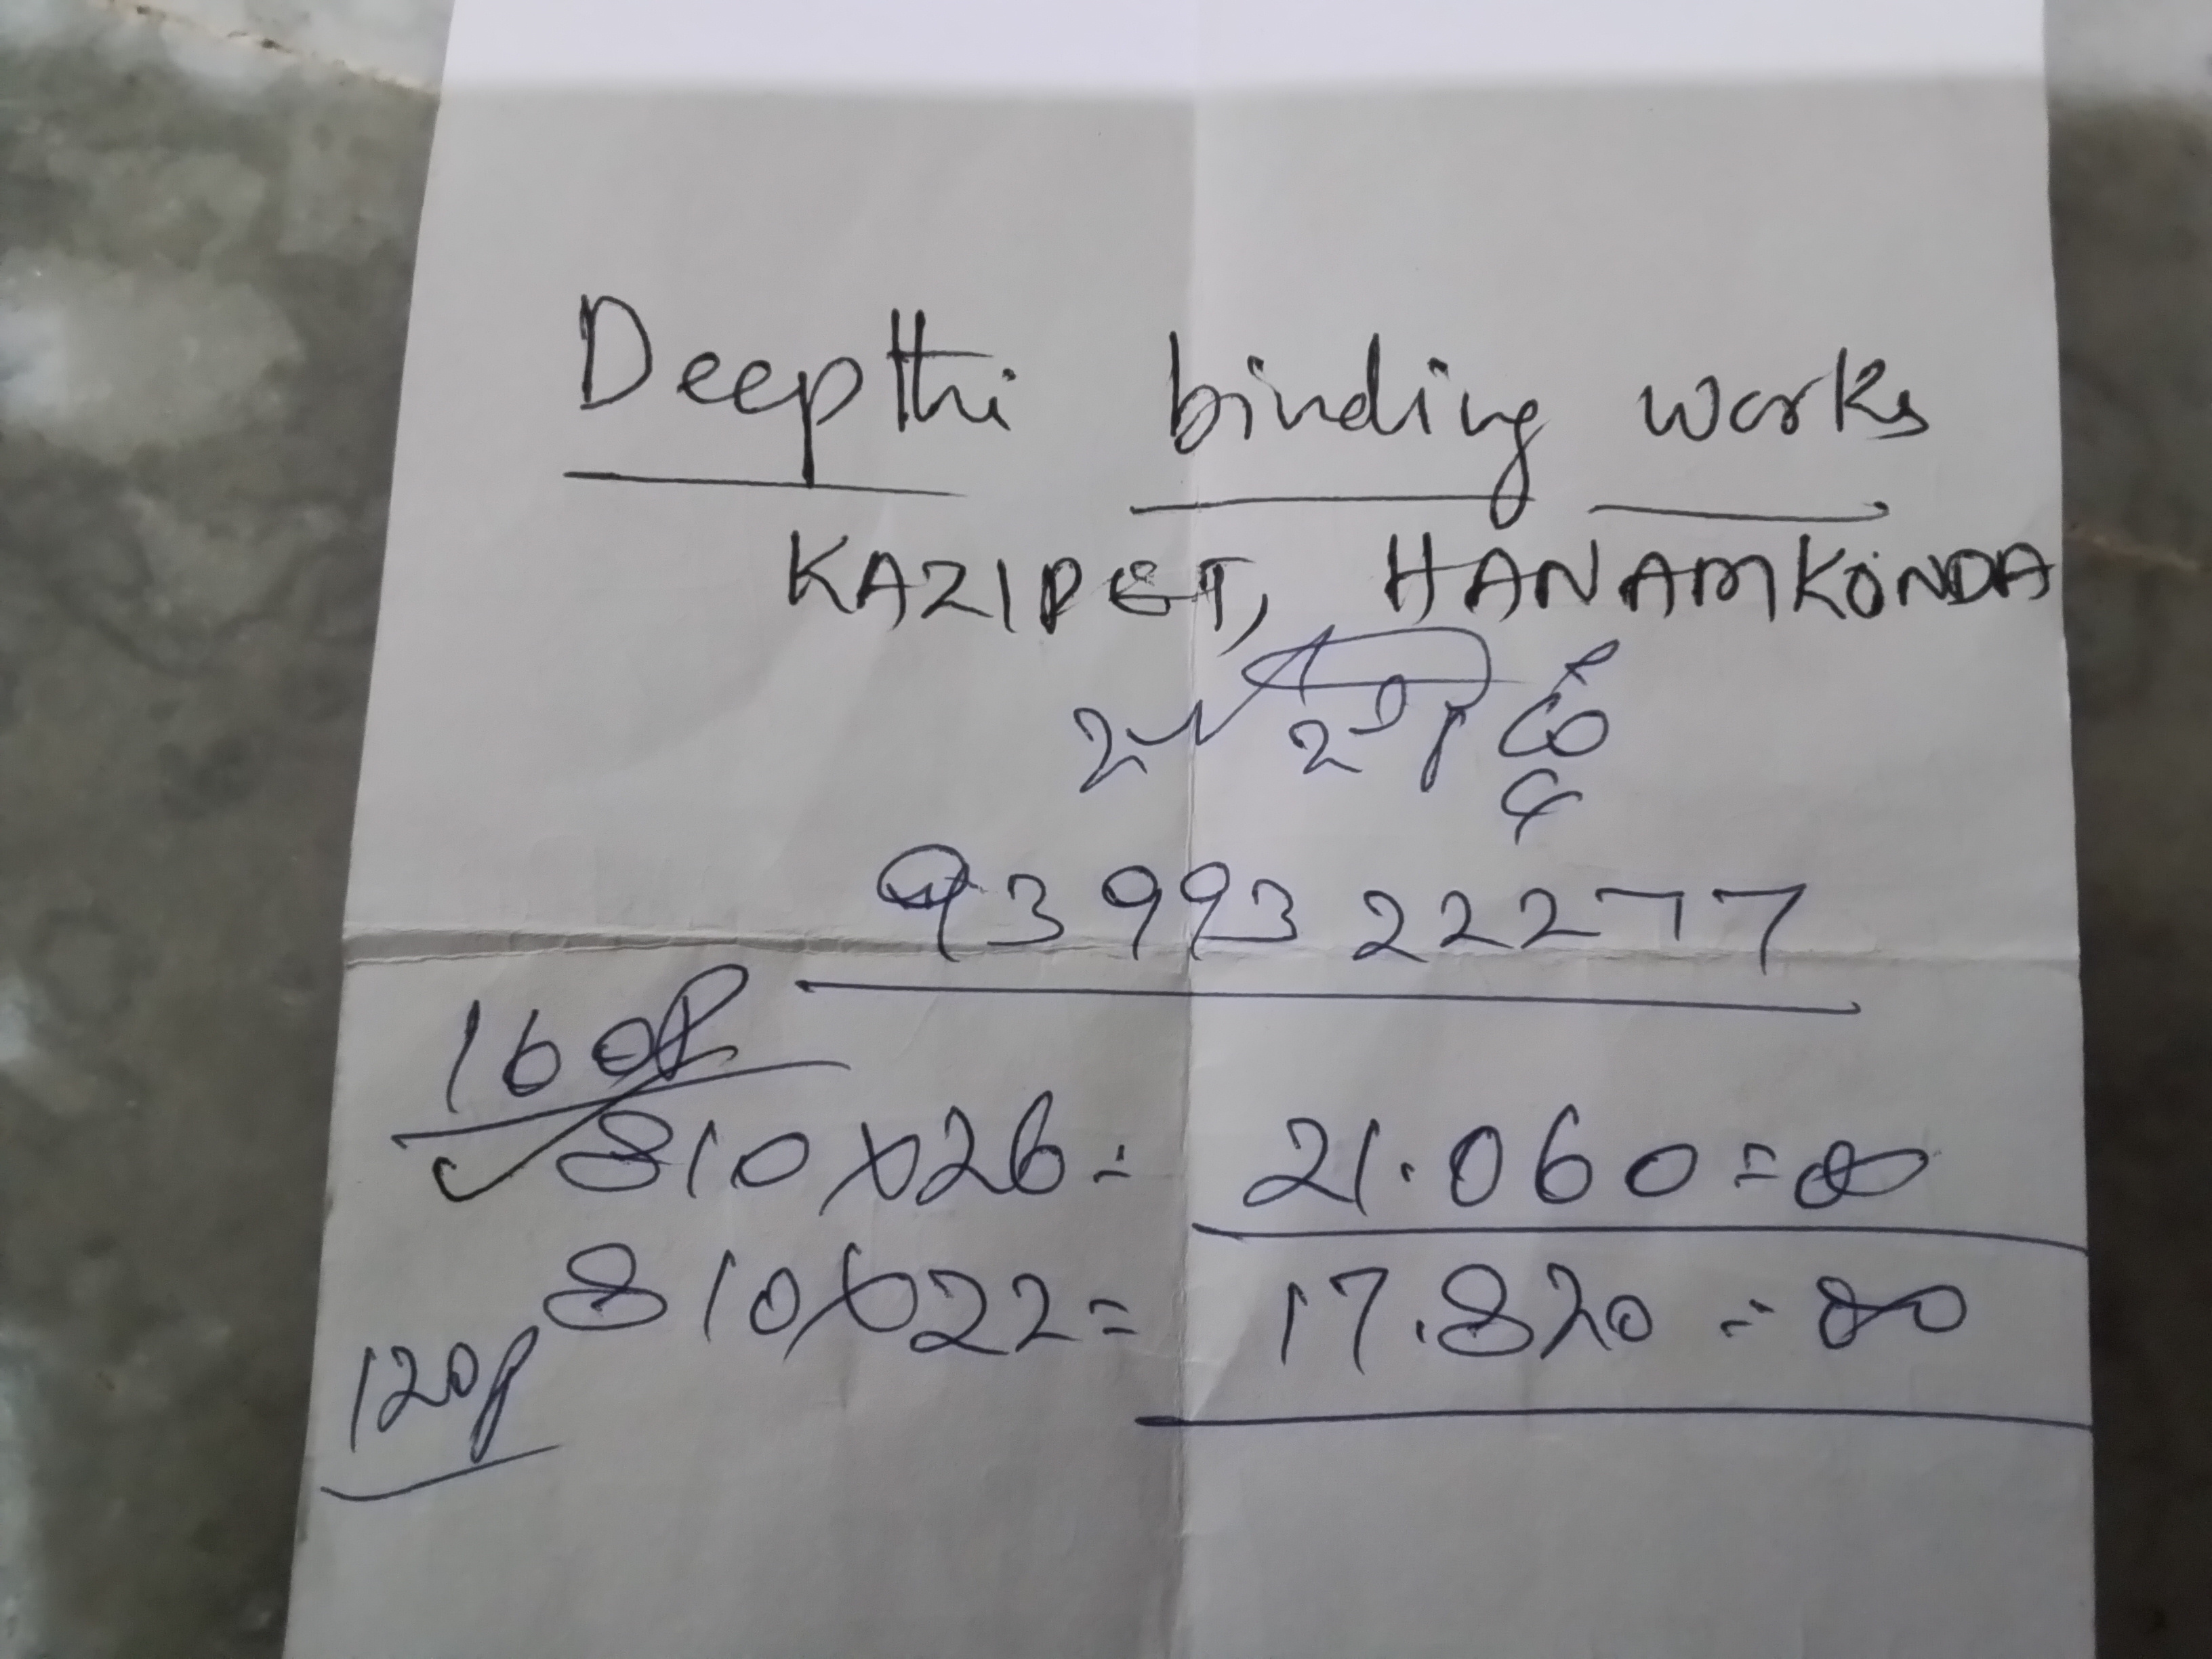 Deepthi binding works
KAZIPET, HANAMKONDA
93993 22277
160P
810x26= 21.060=00
810x22= 17.820=00
120P